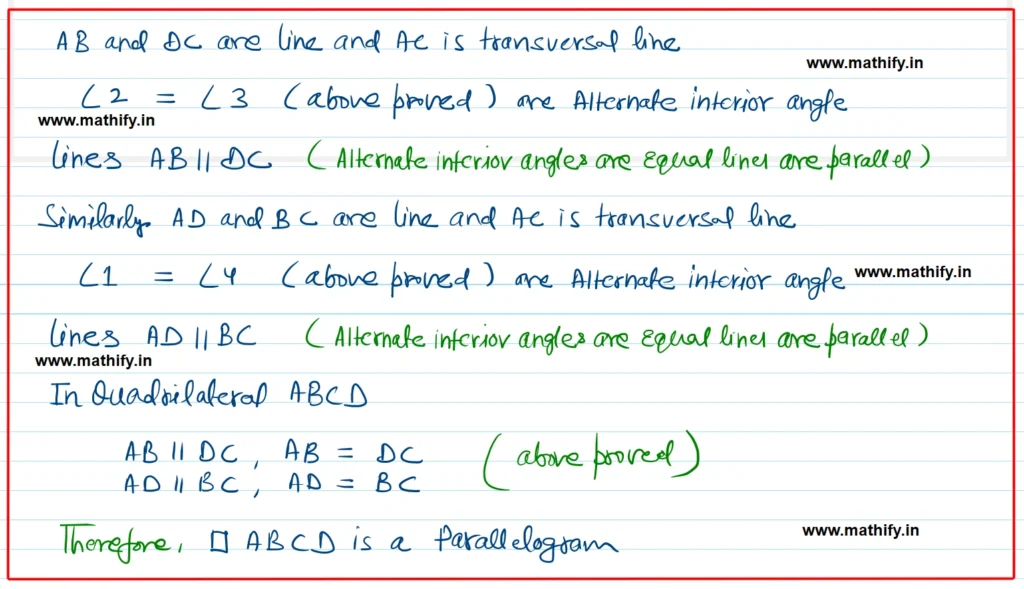 AB and DC are line and AC is transversal line
www.mathify.in
∠2 = ∠3 (above proved) are Alternate interior angle
www.mathify.in
lines AB || DC (Alternate interior angles are Equal lines are parallel)
Similarly AD and BC are line and AC is transversal line
∠1 = ∠4 (above proved) are Alternate interior angle www.mathify.in
lines AD || BC (Alternate interior angles are Equal lines are parallel)
www.mathify.in
In Quadrilateral ABCD
AB || DC, AB = DC (above proved)
AD || BC, AD = BC
Therefore, □ ABCD is a Parallelogram
www.mathify.in